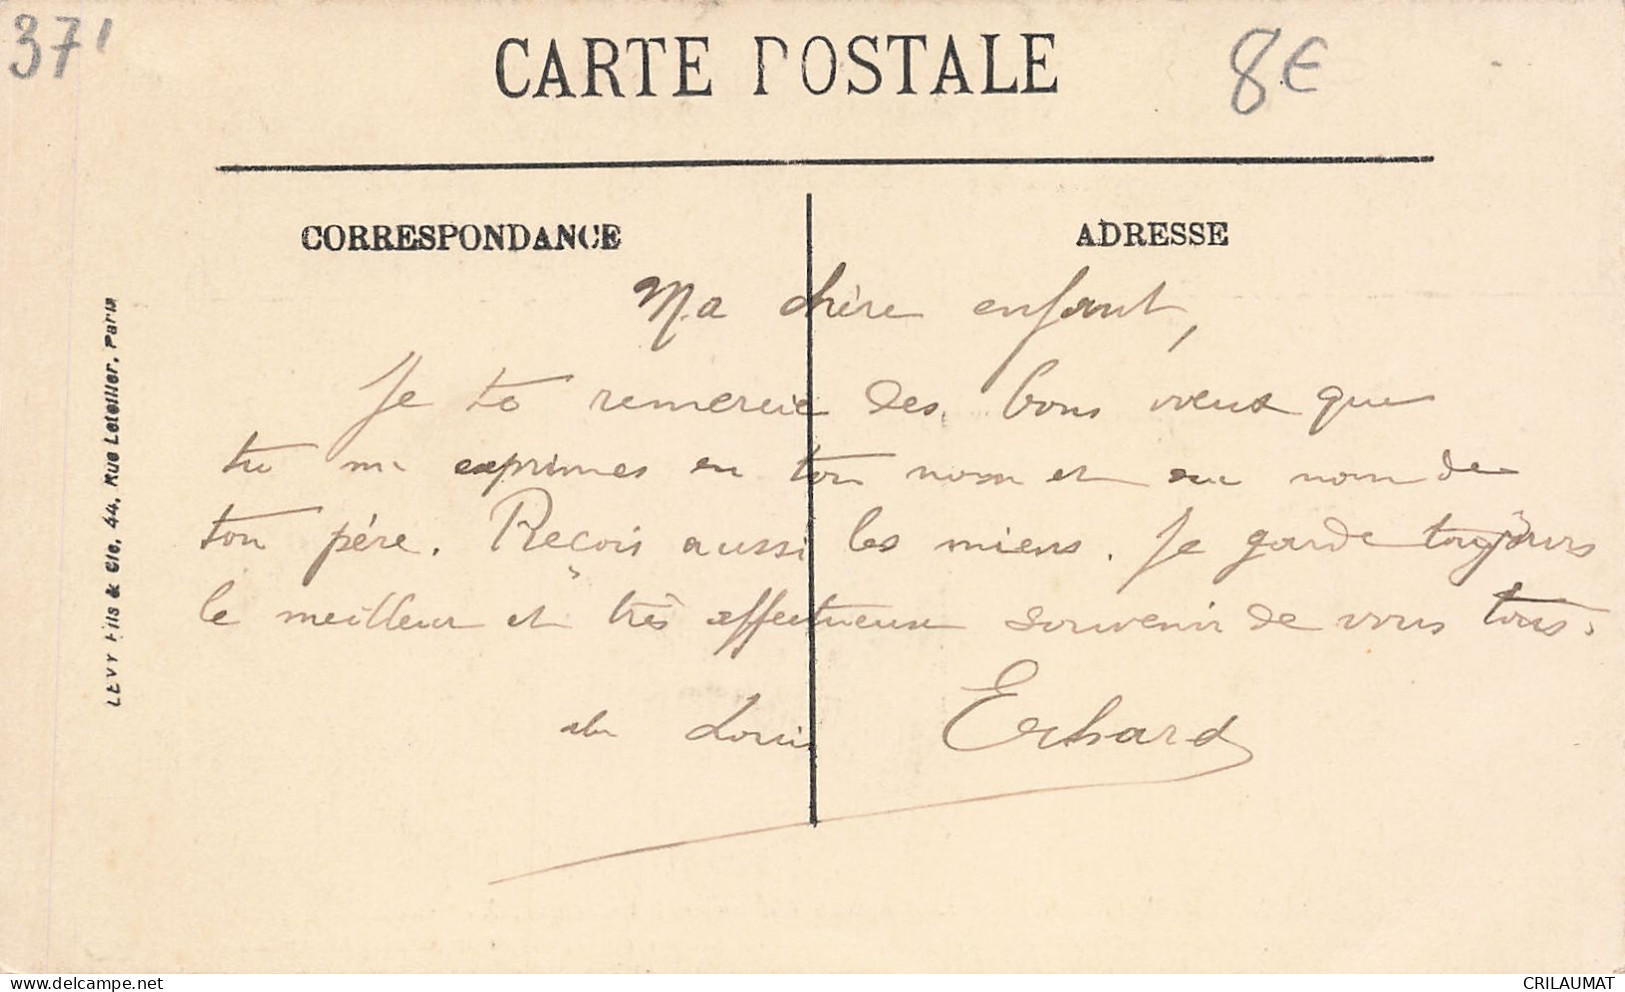 37'
CARTE POSTALE
8€
CORRESPONDANCE
ADRESSE
Ma chère enfant,
Je te remercie des bons vœux que
tu me exprimes en ton nom et au nom de
ton père. Reçois aussi les miens. Je garde toujours
le meilleur et très affectueux souvenir de vous tous.
Louis Echard
LEVY Fils & Cie, 44, Rue Letellier, Paris
delcampe.net
CRILAUMAT